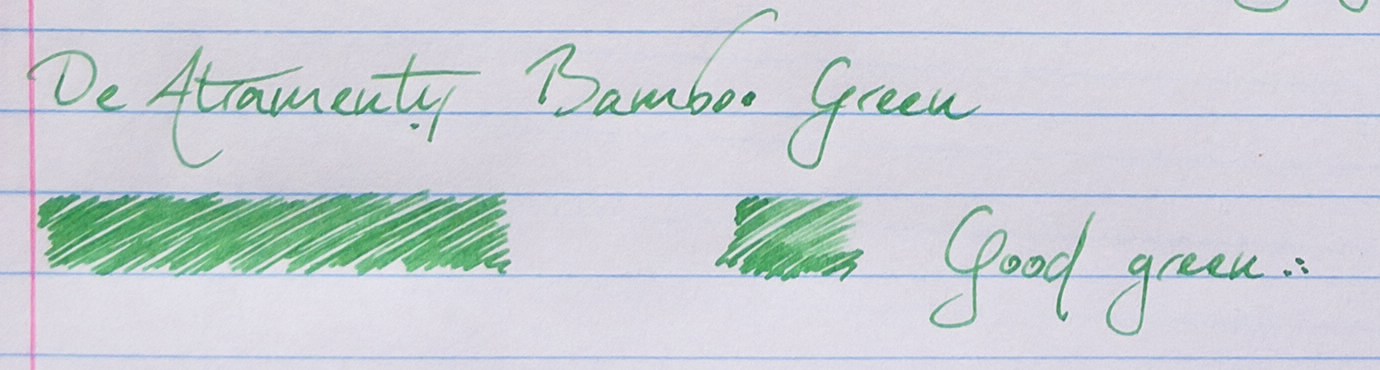 De Atramenty Bamboo Green
Good green...